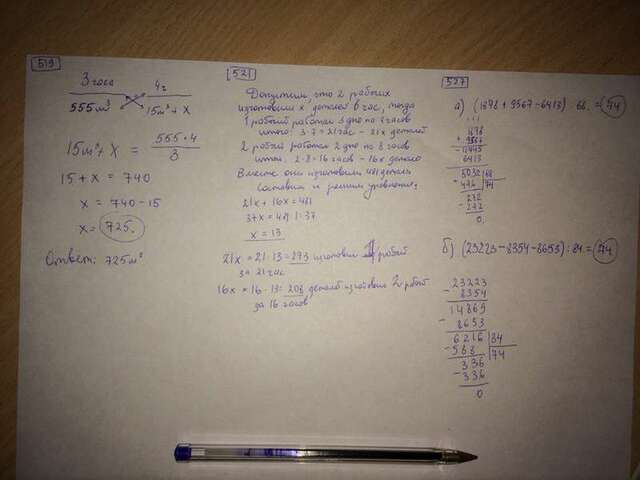 519
3 часа 4ч
555 м³ 15м³ + x
15м³ + x = 555 · 4 / 3
15 + x = 740
x = 740 - 15
x = 725.
Ответ: 725 м³
521
Допустим, что 2 рабочих
изготовили x деталей в час, тогда
1 рабочий работал 3 дня по 7 часов
итого: 3·7 = 21 час - 21x деталей
2 рабочий работал 2 дня по 8 часов
итого: 2·8 = 16 часов - 16x детал
Вместе они изготовили 481 деталь
Составим и решим уравнение:
21x + 16x = 481
37x = 481 : 37
x = 13
21x = 21·13 = 273 изготовил 1 рабочий
за 21 час
16x = 16·13 = 208 деталей изготовил 2 рабочий
за 16 часов
527
а) (1878 + 9567 - 6413) : 68 = 74
1878
+ 9567
11445
- 6413
5032 68
- 476 74
272
- 272
0
б) (23223 - 8354 - 8653) : 84 = 74
23223
- 8354
14869
- 8653
6216 84
- 588 74
336
- 336
0